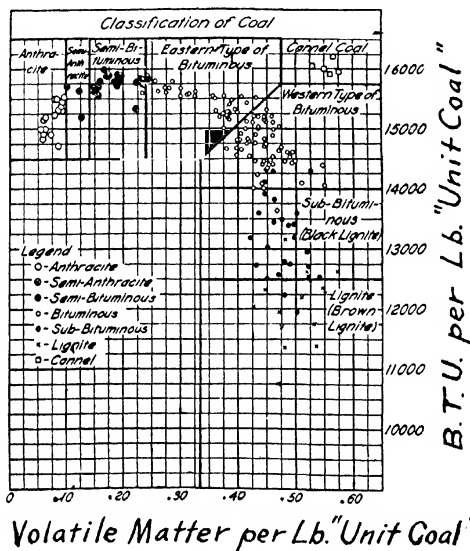 Classification of Coal
Anthra-
cite
Semi-Anth-
racite
Semi-Bi-
tuminous
Eastern Type of
Bituminous
Cannel Coal
Western Type of
Bituminous
Sub-Bitumi-
nous
(Black Lignite)
Lignite
(Brown-
Lignite)
Legend
Anthracite
Semi-Anthracite
Semi-Bituminous
Bituminous
Sub-Bituminous
Lignite
Cannel
16000
15000
14000
13000
12000
11000
10000
B.T.U. per Lb. "Unit Coal"
0 .10 .20 .30 .40 .50 .60
Volatile Matter per Lb. "Unit Coal"